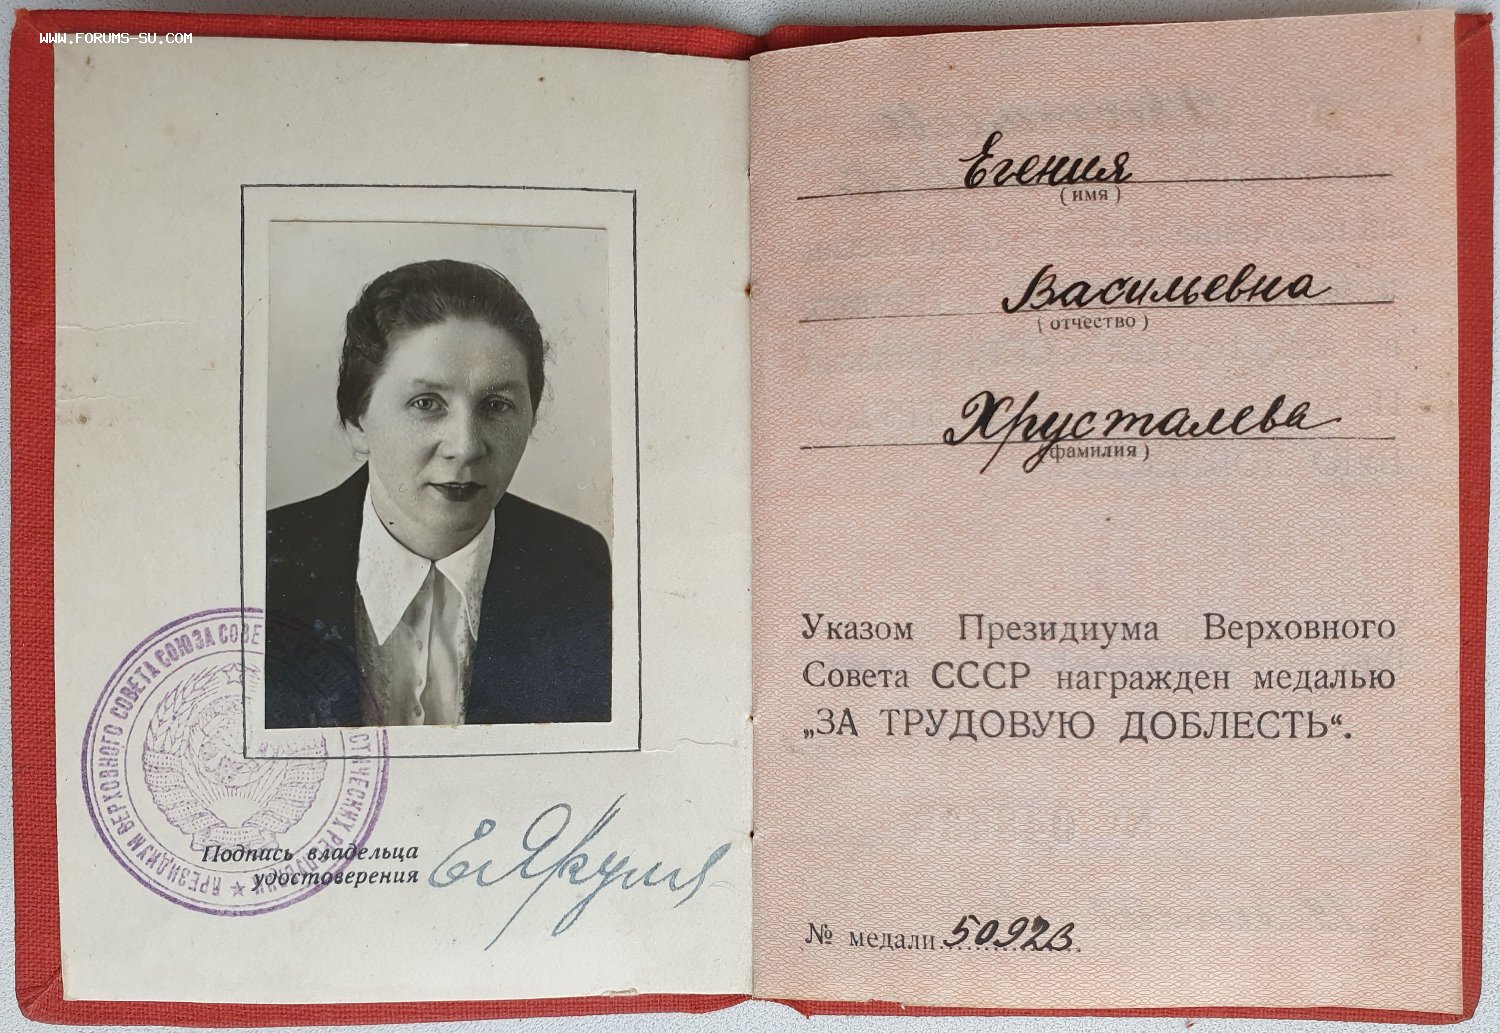 WWW.FORUMS-SU.COM
ПРЕЗИДИУМ ВЕРХОВНОГО СОВЕТА СОЮЗА СОВЕ
Подпись владельца
удостоверения
Егения
( имя )
Васильевна
( отчество )
Хрусталева
(фамилия )
Указом Президиума Верховного
Совета СССР награжден медалью
„ЗА ТРУДОВУЮ ДОБЛЕСТЬ“.
№ медали 50923